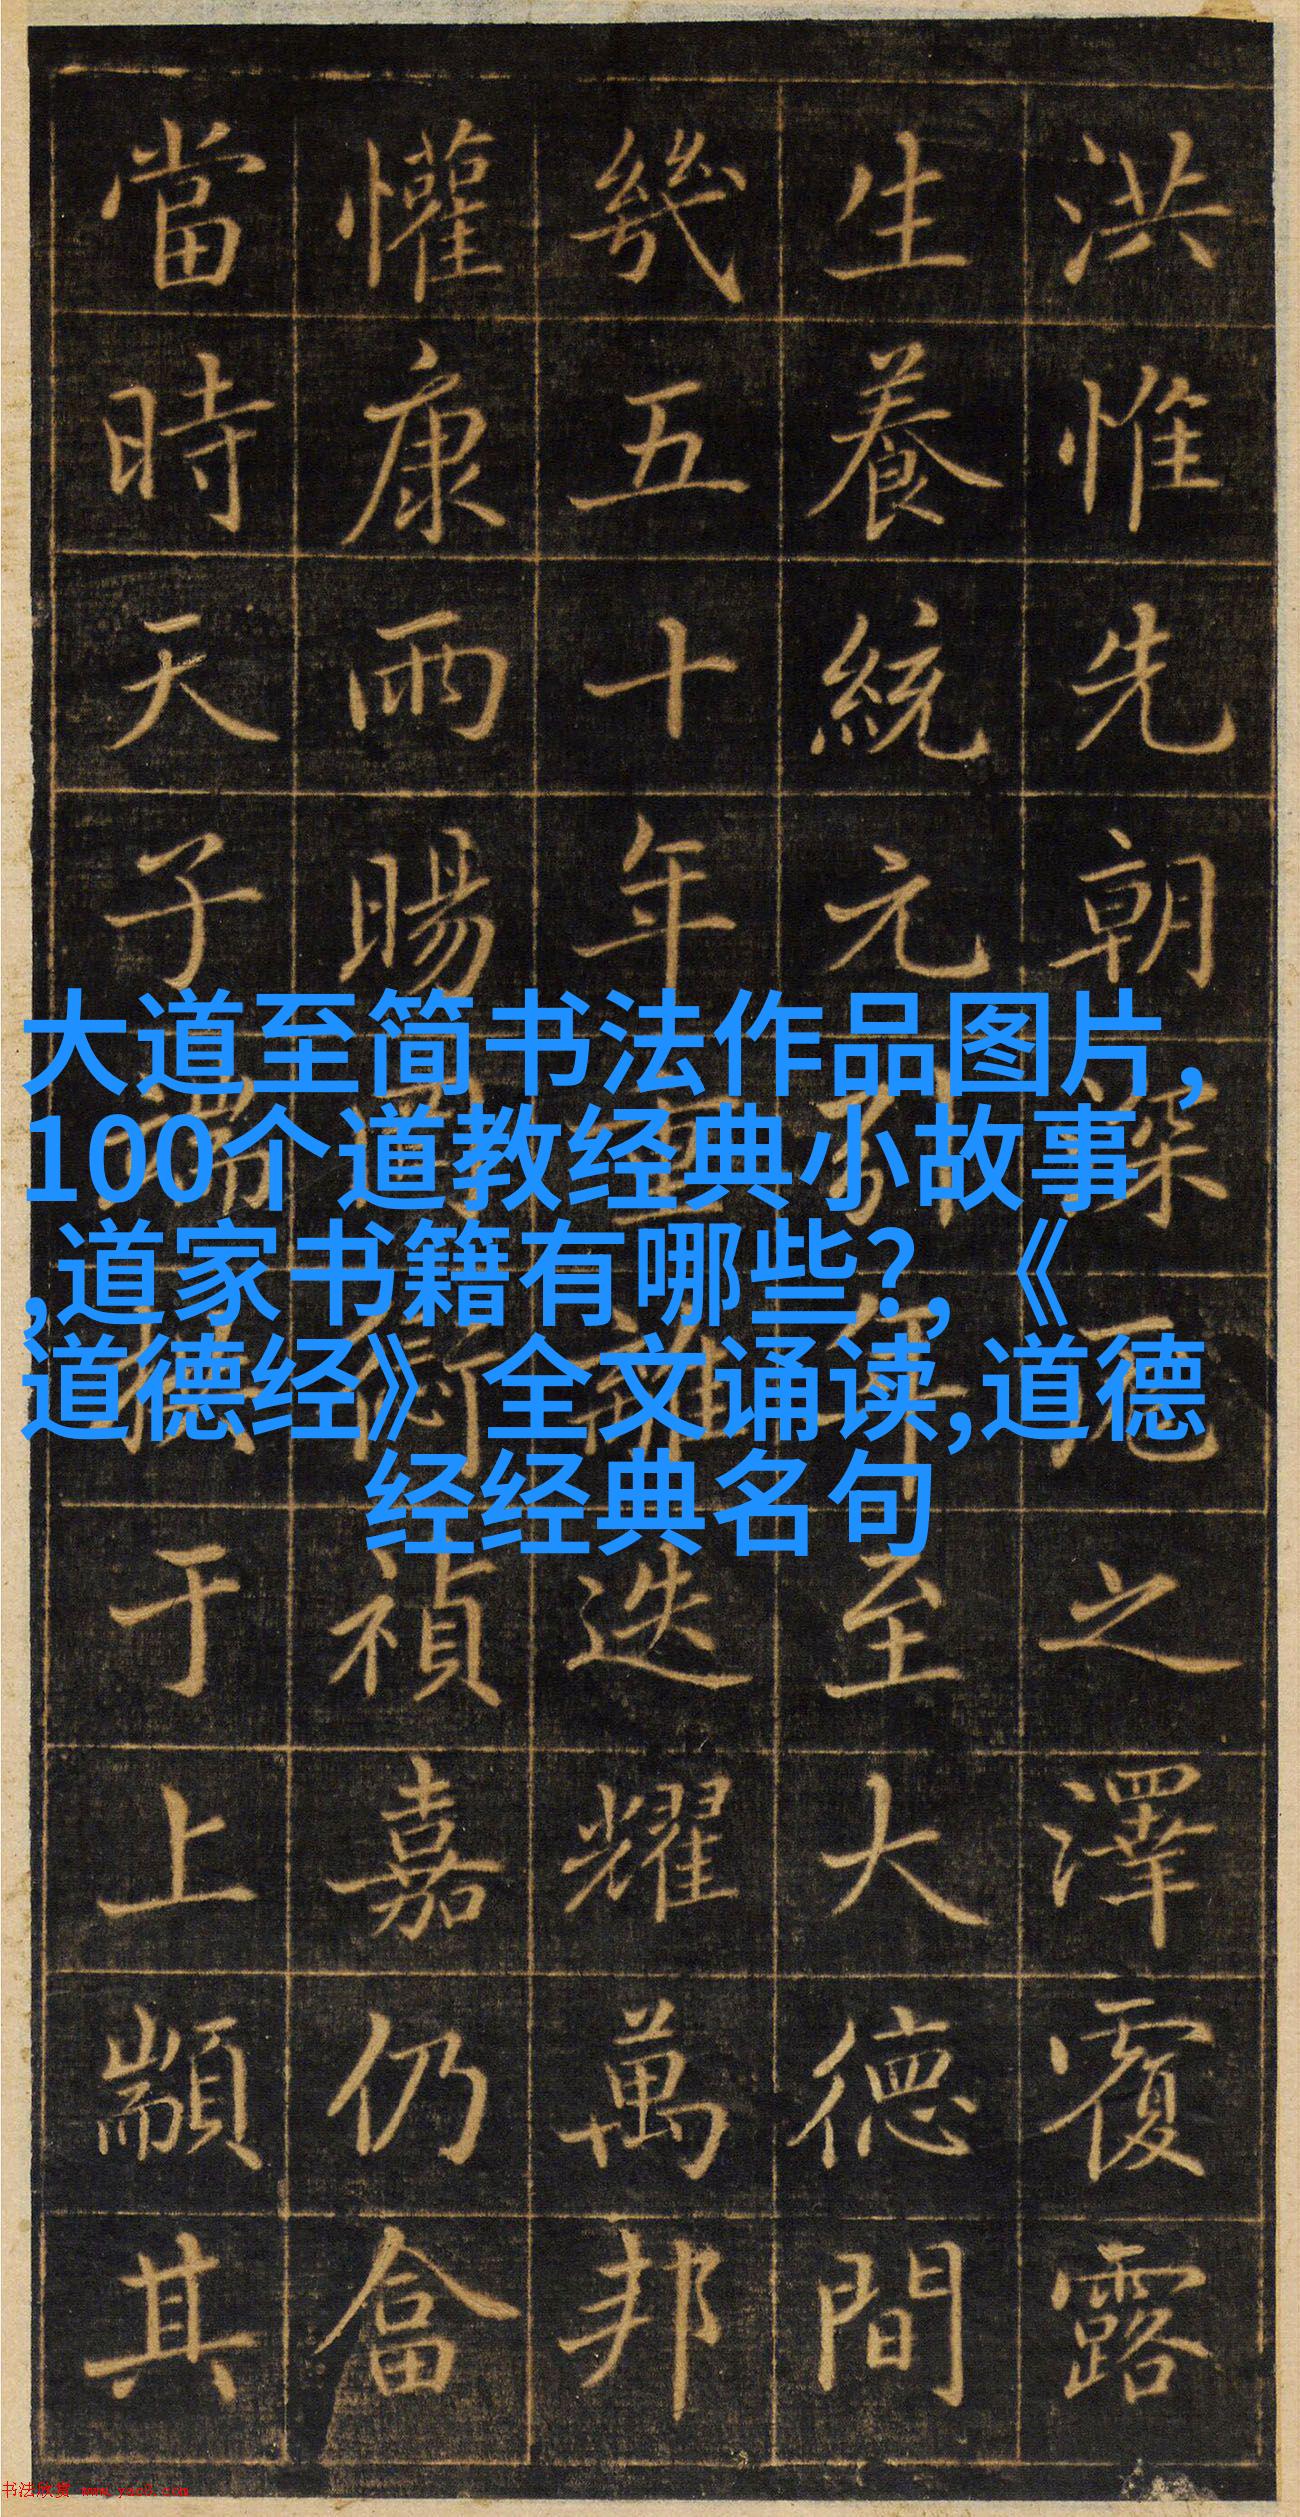 洪惟先朝深之澤覆露
生養統元年至大德間
幾五十年重離迭耀萬邦
懽康雨暘禎嘉仍畣
當時天子端拱于上顒其
大道至简书法作品图片,
100个道教经典小故事
,道家书籍有哪些?,《
道德经》全文诵读,道德
经经典名句
书法欣赏 www.yac8.com